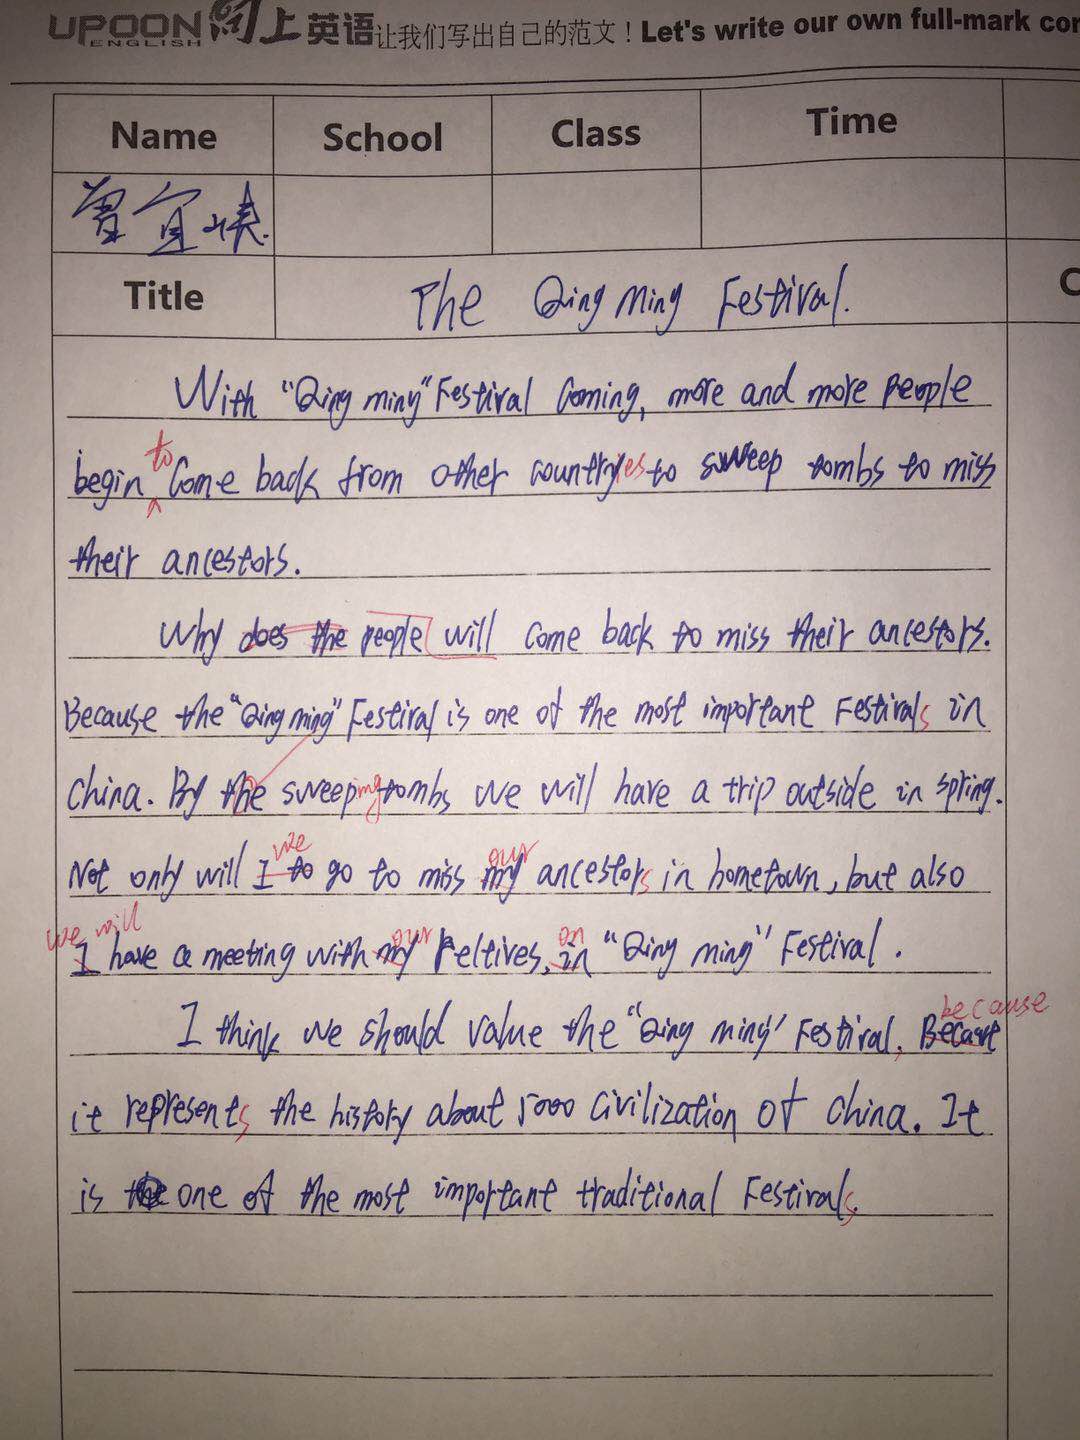 UPOON ENGLISH 向上英语 让我们写出自己的范文！Let's write our own full-mark cor
Name School Class Time
曾宜
Title The Qing Ming Festival. C
With "Qing ming" Festival Coming, more and more people
to
begin Come back from other countryies to sweep tombs to miss
their ancestors.
Why does the people will come back to miss their ancestors.
Because the "Qing ming" Festival is one of the most important Festivals in
china. By the sweeping tombs we will have a trip outside in spring.
we our
Not only will I to go to miss my ancestors in hometown, but also
we will our on
I have a meeting with my Reltives, in "Qing ming" Festival.
because
I think we should value the "Qing ming" Festival, Becaue
it represents the history about 5000 civilization of china. It
is the one of the most important traditional Festivals.